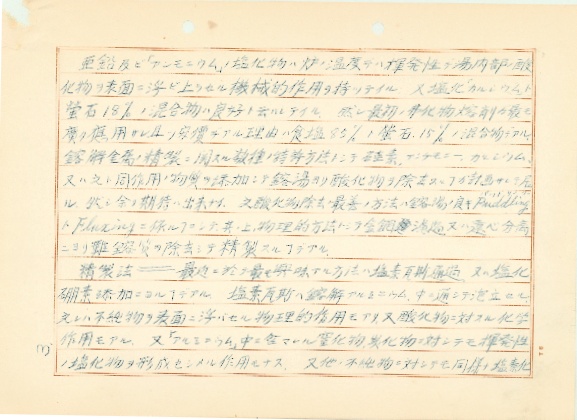 亜鉛及ビ「アンモニウム」ノ塩化物ハ炉ノ温度デハ揮発性デ湯内部ノ酸
化物ヲ表面ニ浮ビ上ラセル機械的作用ヲ持ツテイル 又塩化「カルシウム」ト
螢石18%ノ混合物ハ良好ト云ハレテイル 然シ最初ノ 物 熔剤ガ最モ
廣ク應用サレ且ツ安價デアル理由ハ食塩85%ト螢石15%ノ混合物デアル
鎔解金属ノ精製ニ関スル数種ノ特許方法トシテ 硅素、アンチモニー、カルシウム、
又ハ之ト同作用ノ物質ヲ添加シテ鎔湯ヨリ酸化物ヲ除去スル 方 計画サレテ居
ル 期待ハ出来ナイ 又酸化物除去ノ最善ノ方法ハ鎔湯ヲ良ク Puddling
ト Fluxing 物理的方法トシテ金網 濾過 又ハ 分離
ニヨリ難鎔質ヲ除去シテ精製スルノデアル
精製法 ―― 最近ニ於テ最モ興味アル方法ハ塩素瓦斯 又ハ塩化
硼素添加ニヨルノデアル 塩素瓦斯ハ鎔解アルミニウム中ニ通シテ泡立 ル
之レハ不純物ヲ表面ニ浮バセル物理的作用モアリ又酸化物ニ対スル化学
作用モアル 又「アルミニウム」中ニ含マレル窒化物、炭化物ニ対シテモ揮発性
ノ塩化物ヲ形成セシメル作用ヲナス 又他ノ不純物ニ対シテモ同様ノ塩素化